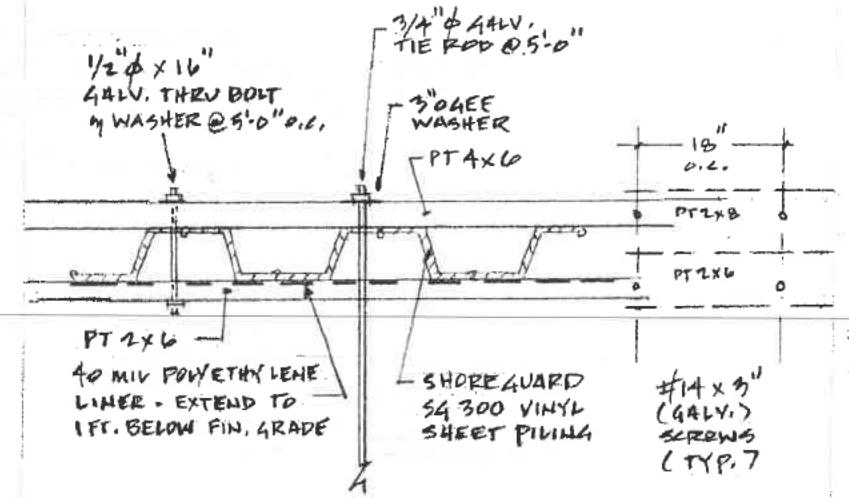 1/2"ϕ x 16"
GALV. THRU BOLT
W/ WASHER @ 5'-0" O.C.
3/4"ϕ GALV.
TIE ROD @ 5'-0"
3" OGEE
WASHER
PT 4x6
18"
O.C.
PT 2x8
PT 2x6
PT 2x6
40 MIL POLYETHYLENE
LINER - EXTEND TO
1 FT. BELOW FIN. GRADE
SHOREGUARD
SG 300 VINYL
SHEET PILING
#14 x 3"
(GALV.)
SCREWS
(TYP.)